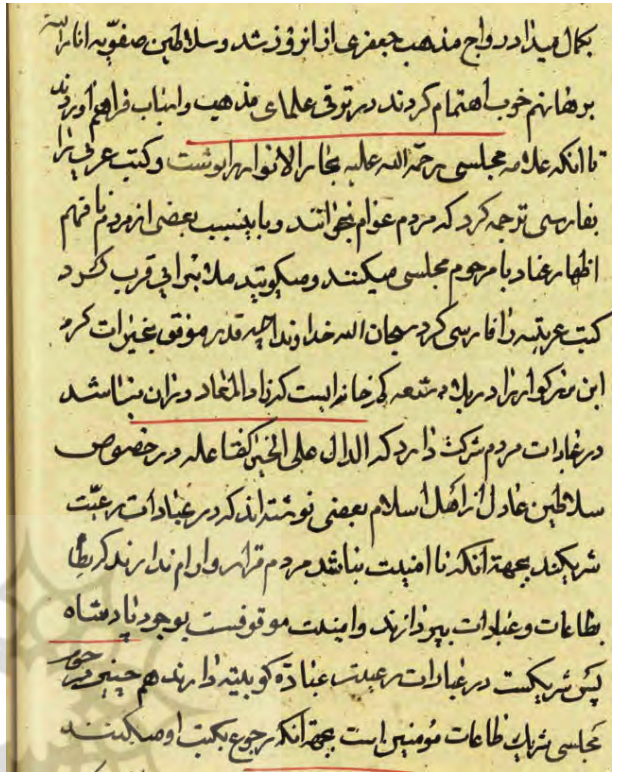 بکمال میداد رواج مذهب جعفری از انروز شد و سلاطین صفویه انار الله
برهانهم خوب اهتمام کردند در ترقی علمای مذهب و اسباب فراهم اوردند
تا انکه علامه مجلسی رحمة الله علیه بحار الانوار را نوشت و کتب عربی را
بفارسی ترجمه کرد که مردم عوام بخوانند و باینسبب بعضی از مردم نافهم
اظهار عناد با مرحوم مجلسی میکنند و میگویند ملا کرد
کتب عربیه را فارسی کرد سبحان الله خداوندا چه قدر موفق بخیرات کرد
این بزرکوار را در بلاد شیعه کم خانه ایست که زاد المعاد در ان نباشد
در عبادات مردم شرکت دارد که الدال علی الخیر کفاعله در خصوص
سلاطین عادل از اهل اسلام بعضی نوشته اند که در عبادات رعیت
شریکند بجهة انکه تا امنیت نباشد مردم قرار و ارام ندارند که
بطاعات و عبادات بپردازند و امنیت موقوفست بوجود پادشاه
پس شریکست در عبادات رعیت دارند هم چنین مرحوم
مجلسی شریک طاعات مؤمنین است بجهة انکه رجوع بکتب او میکنند